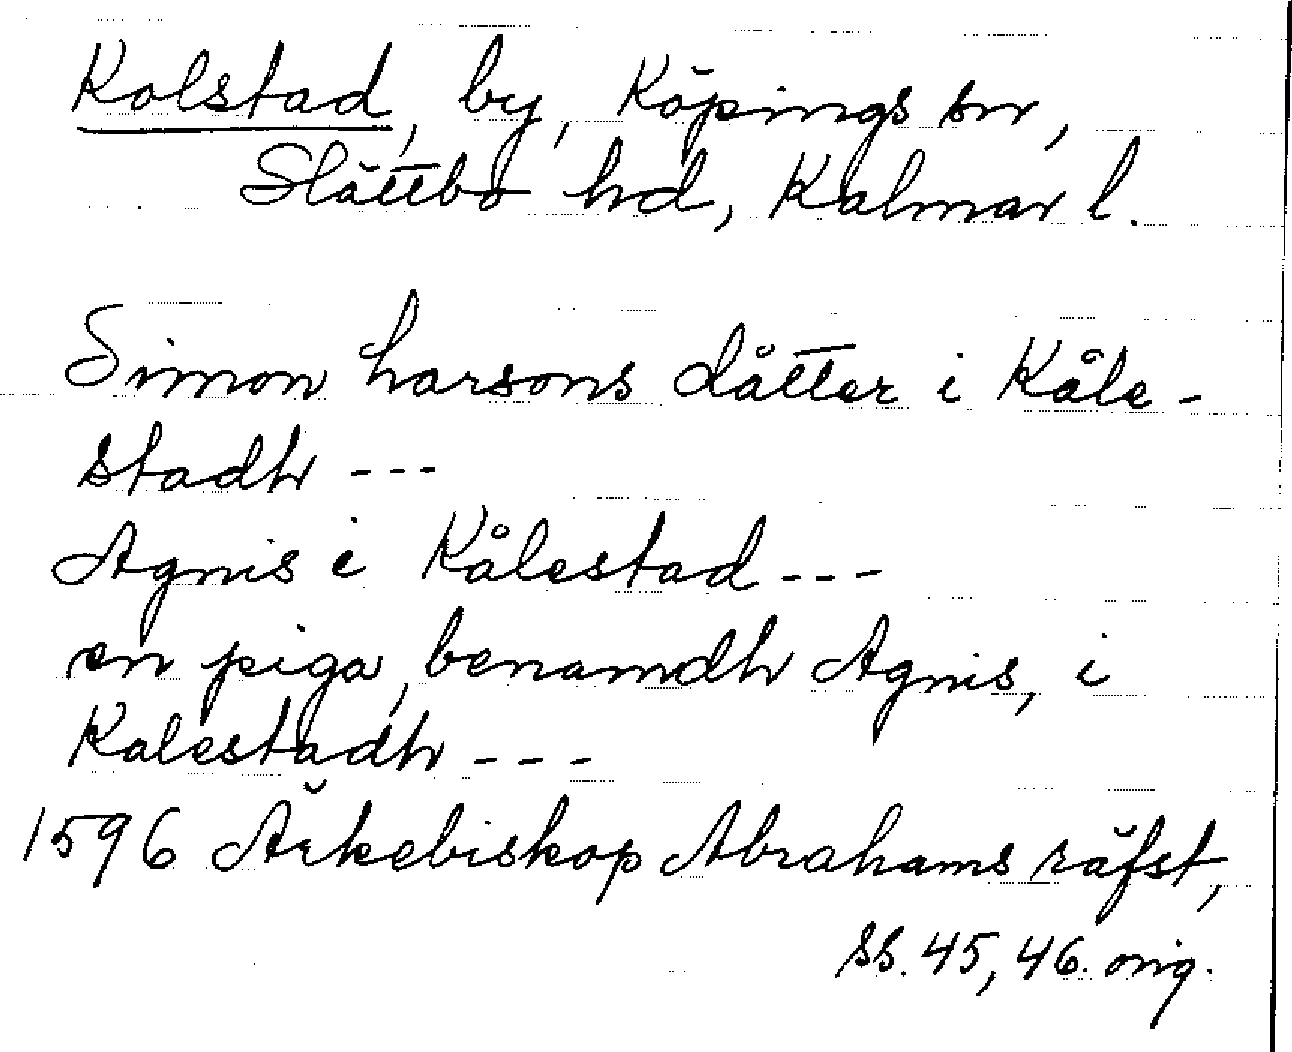 Kolstad, by, Köpings sn,
Slättbo hd, Kalmar l.
Simon harsons dåtter i Kåle-
stadh ---
Agnis i Kålestad ---
en piga, benamdh Agnis, i
Kalestadh ---
1596 Ärkebiskop Abrahams räfst,
ss. 45, 46. orig.